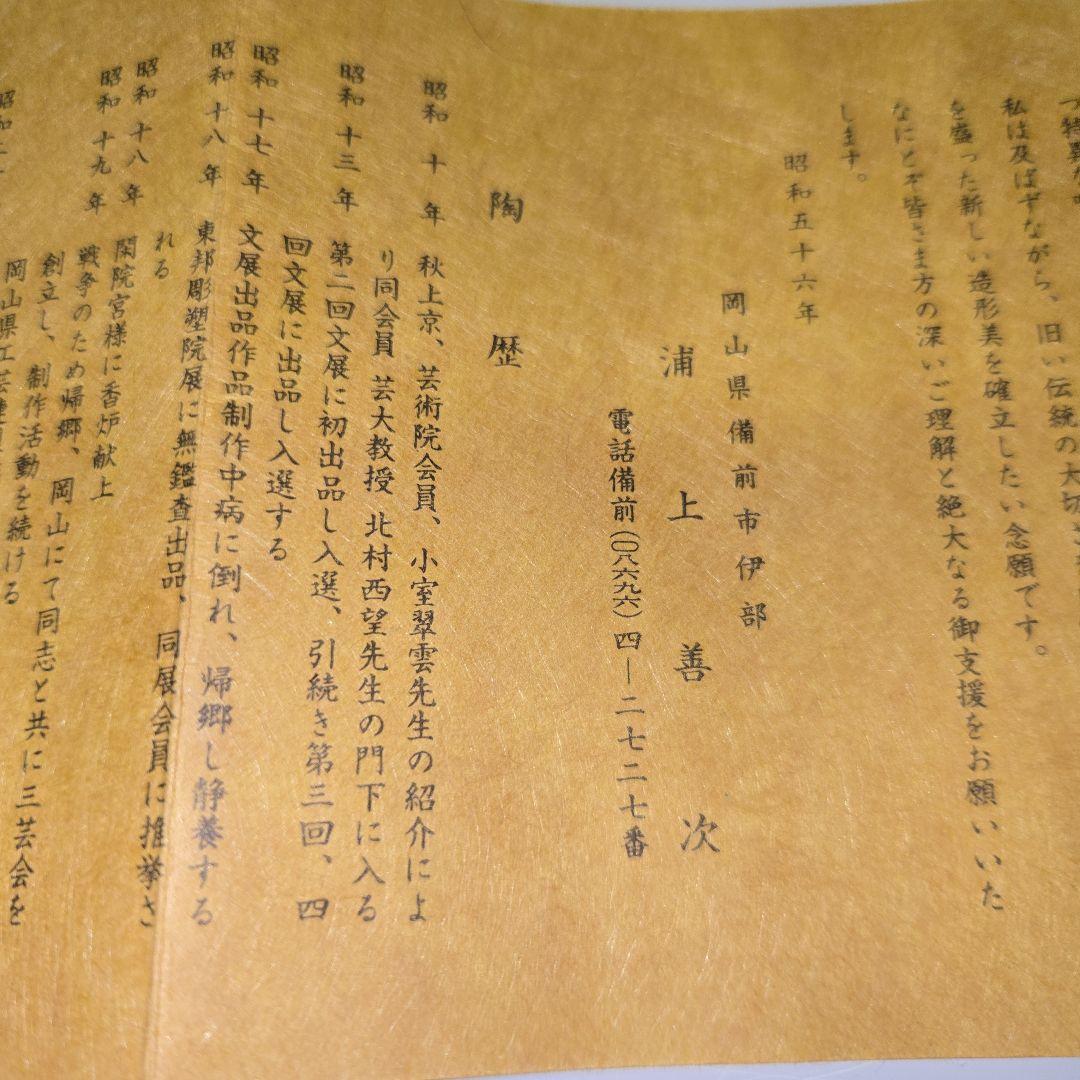 私は及ばずながら、旧い伝統の大切さを
を盛った新しい造形美を確立したい念願です。
なにとぞ皆さま方の深いご理解と絶大なる御支援をお願いいた
します。
昭和五十六年
岡山県備前市伊部
浦上善次
電話備前(〇八六九六)四―二七二七番
陶歴
昭和十年 秋上京、芸術院会員、小室翠雲先生の紹介によ
り同会員 芸大教授 北村西望先生の門下に入る
昭和十三年 第二回文展に初出品し入選、引続き第三回、四
回文展に出品し入選する
昭和十七年 文展出品作品制作中病に倒れ、帰郷し静養する
昭和十八年 東邦彫塑院展に無鑑査出品、同展会員に推挙さ
れる
昭和十八年 閑院宮様に香炉献上
昭和十九年 戦争のため帰郷、岡山にて同志と共に三芸会を
創立し、制作活動を続ける
岡山県工芸